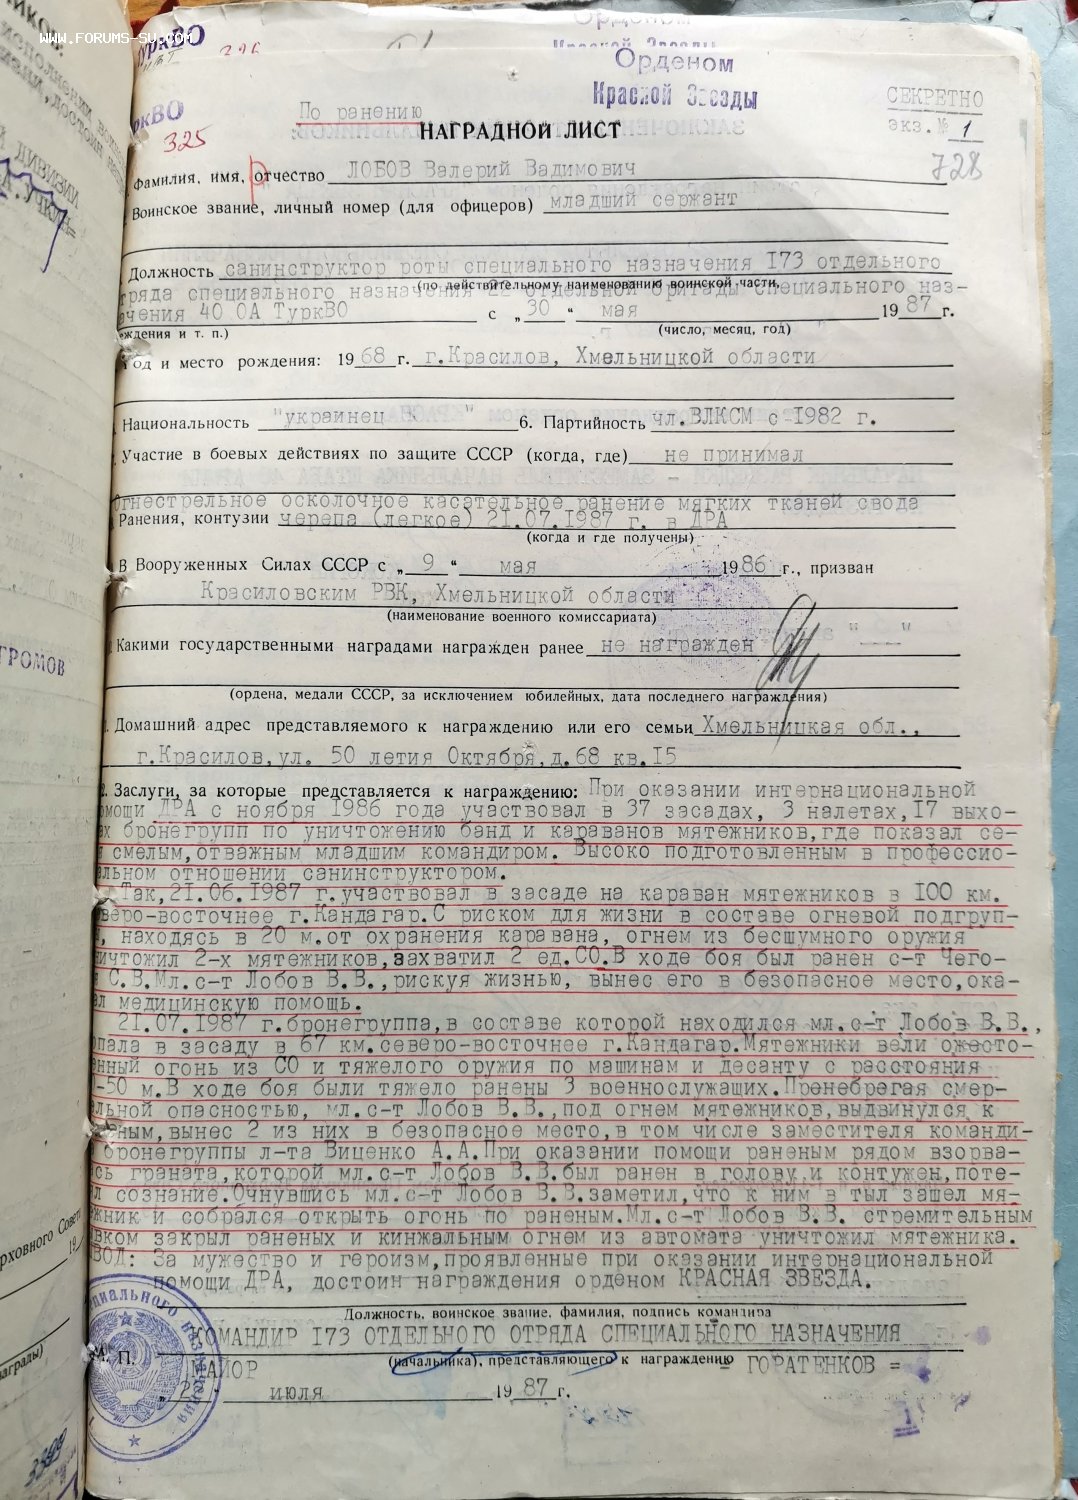 WWW.FORUMS-SU.COM
ТуркВО
Орденом
Красной Звезды
По ранению
НАГРАДНОЙ ЛИСТ
СЕКРЕТНО
экз.№ 1
ркВО
325
728
Фамилия, имя, отчество ЛОБОВ Валерий Вадимович
Воинское звание, личный номер (для офицеров) младший сержант
Должность санинструктор роты специального назначения 173 отдельного
(по действительному наименованию воинской части,
ряда специального назначения 22 отдельной бригады специального наз-
ачения 40 ОА ТуркВО с „30“ мая 1987 г.
ждения и т. п.) (число, месяц, год)
Год и место рождения: 1968 г. г.Красилов, Хмельницкой области
Национальность "украинец" 6. Партийность чл.ВЛКСМ с 1982 г.
Участие в боевых действиях по защите СССР (когда, где) не принимал
Огнестрельное осколочное касательное ранение мягких тканей свода
Ранения, контузии черепа (легкое) 21.07.1987 г. в ДРА
(когда и где получены)
В Вооруженных Силах СССР с „9“ мая 1986 г., призван
Красиловским РВК, Хмельницкой области
(наименование военного комиссариата)
Какими государственными наградами награжден ранее не награжден
(ордена, медали СССР, за исключением юбилейных, дата последнего награждения)
Домашний адрес представляемого к награждению или его семьи Хмельницкая обл.,
г.Красилов,ул. 50 летия Октября,д.68 кв.15
2. Заслуги, за которые представляется к награждению: При оказании интернациональной
омощи ДРА с ноября 1986 года участвовал в 37 засадах, 3 налетах,17 выхо-
ах бронегрупп по уничтожению банд и караванов мятежников,где показал се-
я смелым,отважным младшим командиром. Высоко подготовленным в профессио-
альном отношении санинструктором.
Так,21.06.1987 г.участвовал в засаде на караван мятежников в 100 км.
еверо-восточнее г.Кандагар.С риском для жизни в составе огневой подгруп-
, находясь в 20 м.от охранения каравана, огнем из бесшумного оружия
ичтожил 2-х мятежников,захватил 2 ед.СО.В ходе боя был ранен с-т Чего-
С.В.Мл.с-т Лобов В.В.,рискуя жизнью, вынес его в безопасное место,ока-
ал медицинскую помощь.
21.07.1987 г.бронегруппа,в составе которой находился мл.с-т Лобов В.В.,
опала в засаду в 67 км.северо-восточнее г.Кандагар.Мятежники вели ожесто-
енный огонь из СО и тяжелого оружия по машинам и десанту с расстояния
-50 м.В ходе боя были тяжело ранены 3 военнослужащих.Пренебрегая смер-
ельной опасностью, мл.с-т Лобов В.В.,под огнем мятежников,выдвинулся к
еным,вынес 2 из них в безопасное место,в том числе заместителя команди-
бронегруппы л-та Виценко А.А.При оказании помощи раненым рядом взорва-
сь граната,которой мл.с-т Лобов В.В.был ранен в голову,и контужен,поте-
л сознание.Очнувшись мл.с-т Лобов В.В.заметил,что к ним в тыл зашел мя-
жник и собрался открыть огонь по раненым.Мл.с-т Лобов В.В. стремительным
ывком закрыл раненых и кинжальным огнем из автомата уничтожил мятежника.
ВОД: За мужество и героизм,проявленные при оказании интернациональной
помощи ДРА, достоин награждения орденом КРАСНАЯ ЗВЕЗДА.
Должность, воинское звание, фамилия, подпись командира
КОМАНДИР 173 ОТДЕЛЬНОГО ОТРЯДА СПЕЦИАЛЬНОГО НАЗНАЧЕНИЯ
(начальника), представляющего к награждению
М. П. МАЙОР - ГОРАТЕНКОВ =
июля 1987 г.
ГРОМОВ
рховного Совет
аграды)